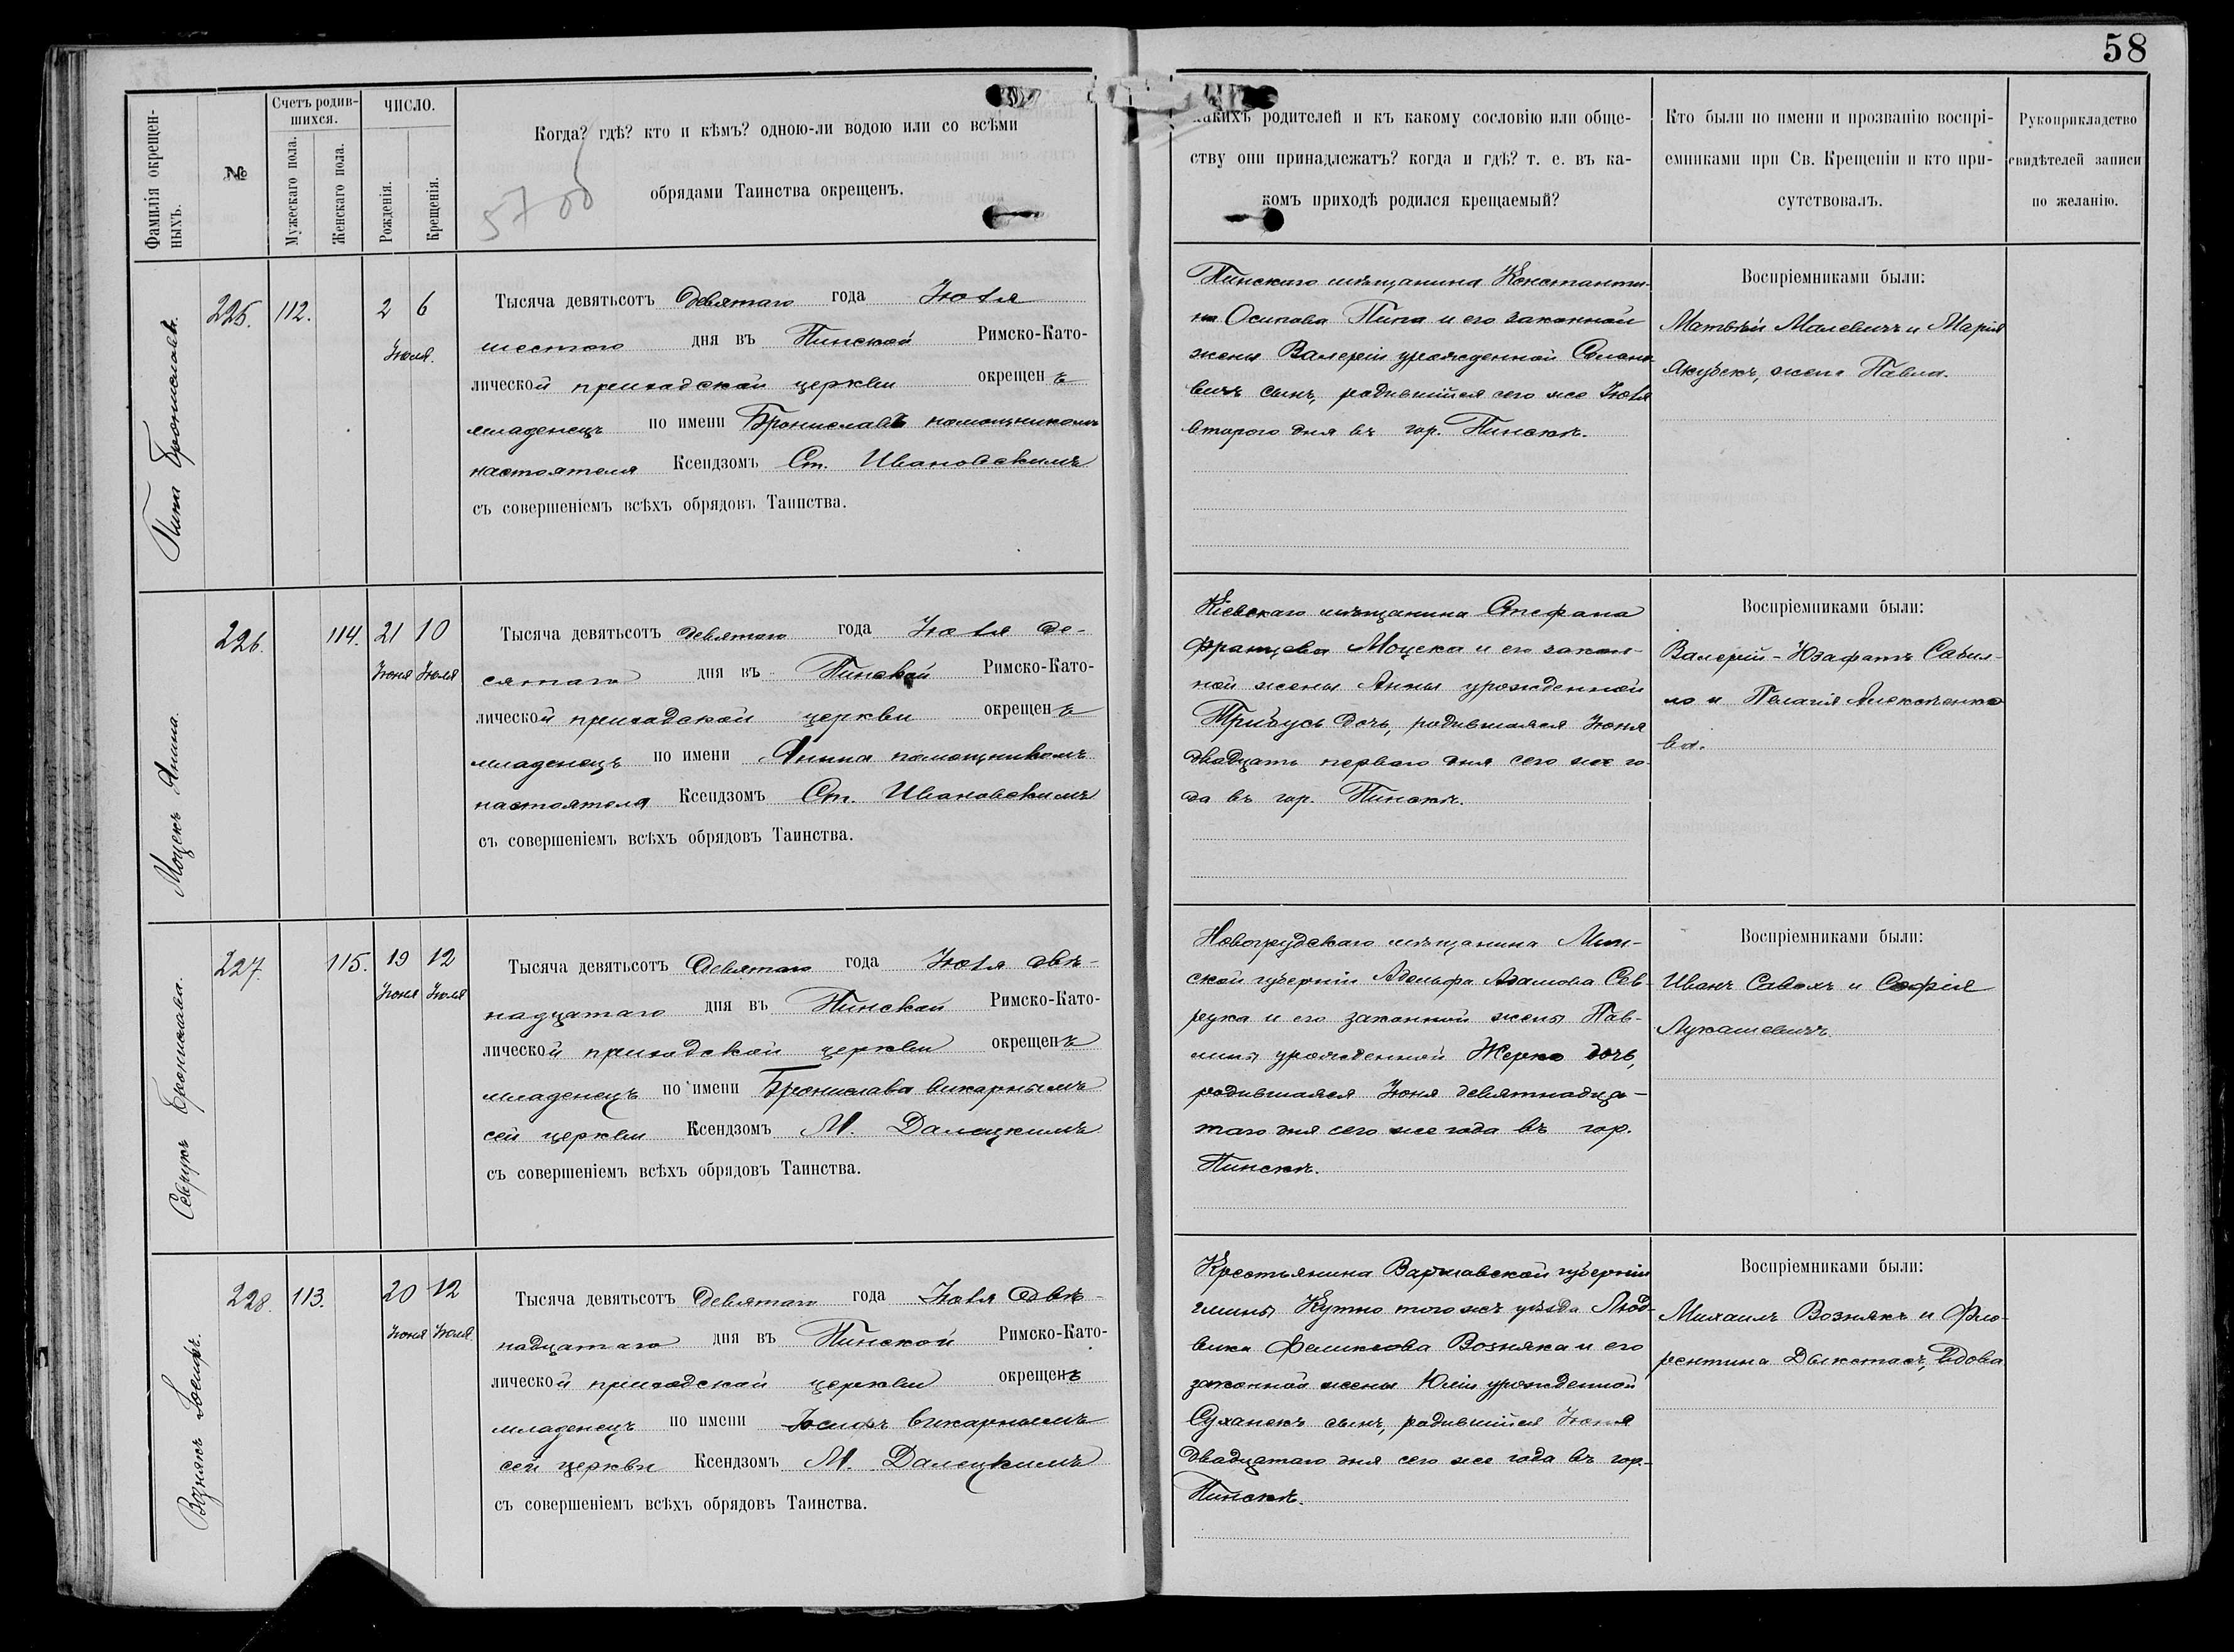 58
Фамилія окрещен-
ныхъ.
№
Счетъ родив-
шихся.
Мужескаго пола.
Женскаго пола.
ЧИСЛО.
Рожденія.
Крещенія.
Когда? гдѣ? кто и кѣмъ? одною-ли водою или со всѣми
обрядами Таинства окрещенъ.
5700
какихъ родителей и къ какому сословію или обще-
ству они принадлежатъ? когда и гдѣ? т. е. въ ка-
комъ приходѣ родился крещаемый?
Кто были по имени и прозванію воспрі-
емниками при Св. Крещеніи и кто при-
сутствовалъ.
Рукоприкладство
свидѣтелей записи
по желанію.
Пипа Брониславъ.
225.
112.
2 6
Іюля.
Тысяча девятьсотъ девятаго года Іюля
шестого дня въ Пинской Римско-Като-
лической приходской церкви окрещенъ
младенецъ по имени Брониславъ помощникомъ
настоятеля Ксендзомъ Ст. Ивановскимъ
съ совершеніемъ всѣхъ обрядовъ Таинства.
Пинскаго мѣщанина Константи-
на Осипова Пипа и его законной
жены Валеріи урожденной Солоно-
вичъ сынъ, родившійся сего же Іюля
второго дня въ гор. Пинскѣ.
Воспріемниками были:
Матвѣй Малевичъ и Марія
Якубекъ, жена Павла.
Моцекъ Анина.
226.
114.
21 10
Іюня Іюля
Тысяча девятьсотъ девятаго года Іюля де-
сятаго дня въ Пинской Римско-Като-
лической приходской церкви окрещенъ
младенецъ по имени Янина помощникомъ
настоятеля Ксендзомъ Ст. Ивановскимъ
съ совершеніемъ всѣхъ обрядовъ Таинства.
Кіевскаго мѣщанина Стефана
Францева Моцека и его закон-
ной жены Анны урожденной
Трибусъ дочь, родившаяся Іюня
двадцать перваго дня сего же го-
да въ гор. Пинскѣ.
Воспріемниками были:
Валерій-Юзафатъ Савил-
ло и Пелагія Алексѣенко-
ва.
Севрукъ Бронислава.
227.
115.
19 12
Іюня Іюля
Тысяча девятьсотъ девятаго года Іюля двѣ-
надцатаго дня въ Пинской Римско-Като-
лической приходской церкви окрещенъ
младенецъ по имени Бронислава викарнымъ
сей церкви Ксендзомъ М. Далецкимъ
съ совершеніемъ всѣхъ обрядовъ Таинства.
Новогрудскаго мѣщанина Мин-
ской губерніи Адольфа Адамова Сев-
рука и его законной жены Пав-
лины урожденной Жерко дочь,
родившаяся Іюня девятнадца-
таго дня сего же года въ гор.
Пинскѣ.
Воспріемниками были:
Иванъ Савохъ и Софія
Лукашевичъ
Вознякъ Іосифъ.
228.
113.
20 12
Іюня Іюля
Тысяча девятьсотъ девятаго года Іюля двѣ-
надцатаго дня въ Пинской Римско-Като-
лической приходской церкви окрещенъ
младенецъ по имени Іосифъ викарнымъ
сей церкви Ксендзомъ М. Далецкимъ
съ совершеніемъ всѣхъ обрядовъ Таинства.
Крестьянина Варшавской губерніи
гмины Кутно того жъ уѣзда Люд-
вика Феликсова Возняка и его
законной жены Юліи урожденной
Суханекъ сынъ, родившійся Іюня
двадцатаго дня сего же года въ гор.
Пинскѣ.
Воспріемниками были:
Михаилъ Вознякъ и Фло-
рентина Дыкстасъ, вдова